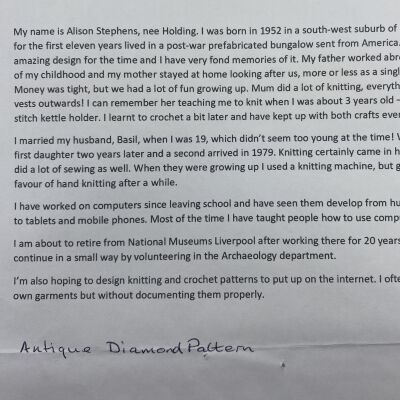 My name is Alison Stephens, nee Holding. I was born in 1952 in a south-west suburb of
for the first eleven years lived in a post-war prefabricated bungalow sent from America.
amazing design for the time and I have very fond memories of it. My father worked abr
of my childhood and my mother stayed at home looking after us, more or less as a singl
Money was tight, but we had a lot of fun growing up. Mum did a lot of knitting, everyth
vests outwards! I can remember her teaching me to knit when I was about 3 years old –
stitch kettle holder. I learnt to crochet a bit later and have kept up with both crafts ever
I married my husband, Basil, when I was 19, which didn't seem too young at the time! W
first daughter two years later and a second arrived in 1979. Knitting certainly came in h
did a lot of sewing as well. When they were growing up I used a knitting machine, but g
favour of hand knitting after a while.
I have worked on computers since leaving school and have seen them develop from hu
to tablets and mobile phones. Most of the time I have taught people how to use comp
I am about to retire from National Museums Liverpool after working there for 20 years
continue in a small way by volunteering in the Archaeology department.
I'm also hoping to design knitting and crochet patterns to put up on the internet. I ofte
own garments but without documenting them properly.
Antique Diamond Pattern